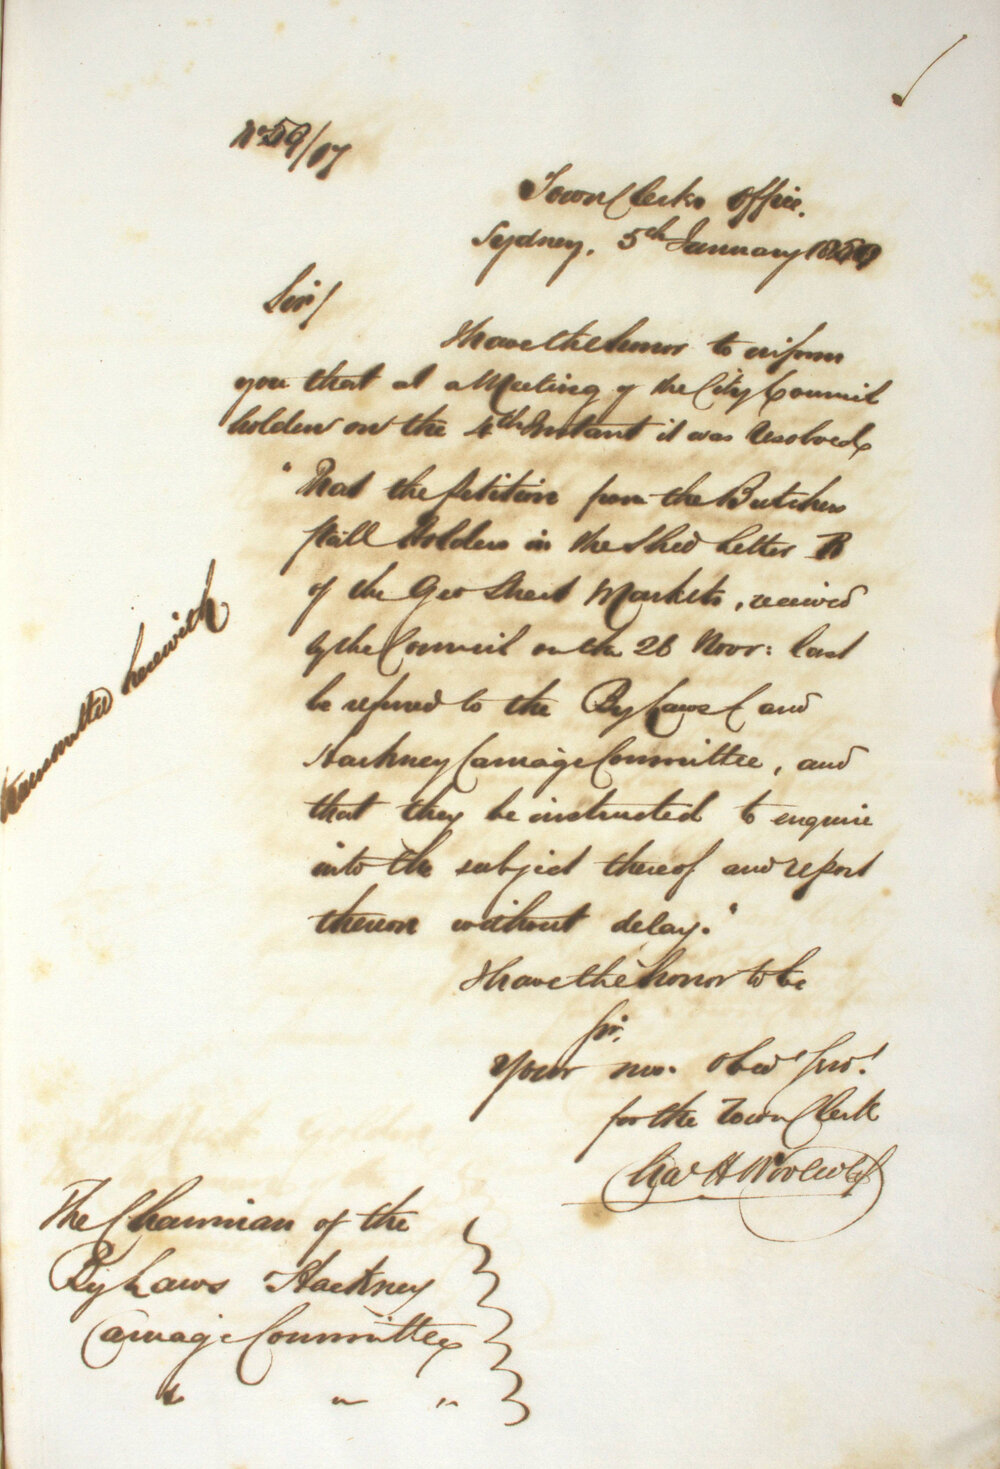 No 59/17
Town Clerks Office.
Sydney, 5th January 1859
Sir/
I have the honor to inform
you that at a Meeting of the City Council
holden on the 4th Instant it was Resolved
"That the Petition from the Butchers
Stall Holders in the Shed Letter B
of the Geo Street Markets, received
by the Council on the 28 Novr: last
be referred to the By Laws & and
Hackney Carriage Committee, and
that they be instructed to enquire
into the subject thereof and report
thereon without delay."
I have the honor to be
Sir,
Your mo. Obed Serv.t
for the Town Clerk
Chas H Woolcott
transmitted herewith
The Chairman of the
By Laws Hackney
Carriage Committee
" " "